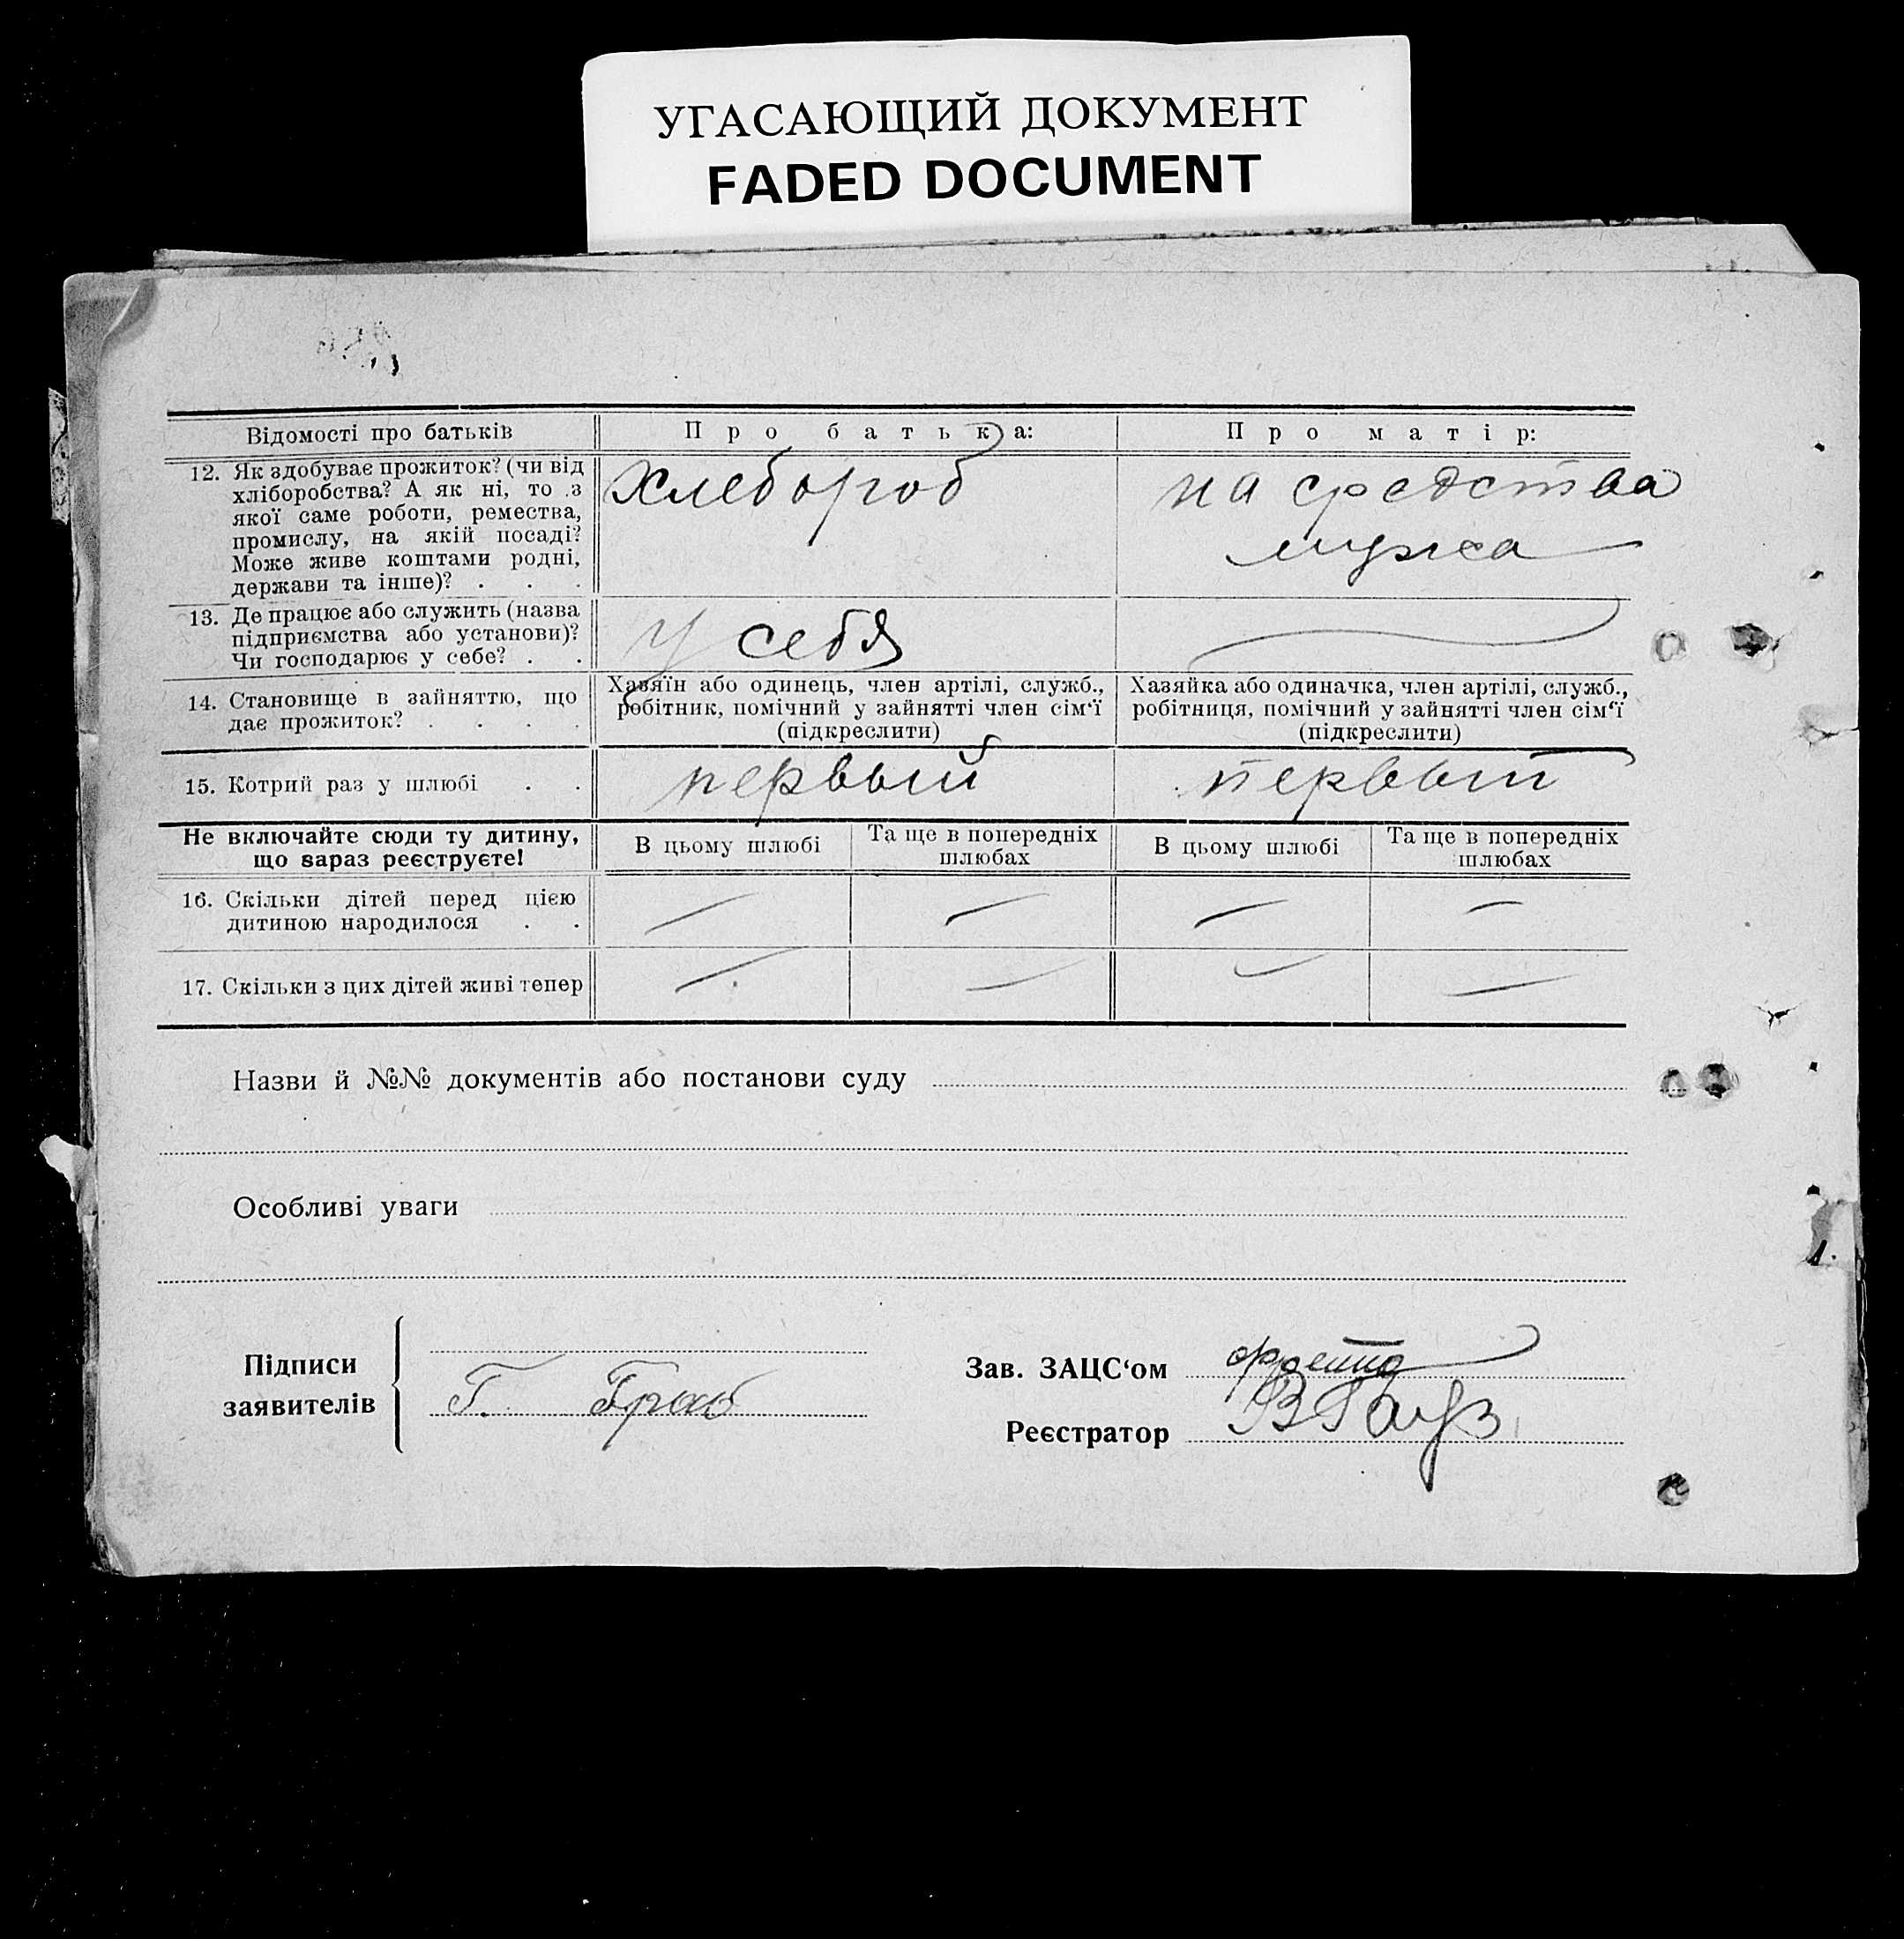 УГАСАЮЩИЙ ДОКУМЕНТ
FADED DOCUMENT
Відомості про батьків
Про батька:
Про матір:
12. Як здобуває прожиток? (чи від
хліборобства? А як ні, то з
якої саме роботи, ремества,
промислу, на якій посаді?
Може живе коштами родні,
держави та інше)? . . .
хлебороб
на средства
мужа
13. Де працює або служить (назва
підприємства або установи)?
Чи господарює у себе? . .
у себя
14. Становище в зайняттю, що
дає прожиток? . . . .
Хазяїн або одинець, член артілі, служб.,
робітник, помічний у зайнятті член сім‘ї
(підкреслити)
Хазяйка або одиначка, член артілі, служб.,
робітниця, помічний у зайнятті член сім‘ї
(підкреслити)
15. Котрий раз у шлюбі . .
первый
первый
Не включайте сюди ту дитину,
що зараз реєструєте!
В цьому шлюбі
Та ще в попередніх
шлюбах
В цьому шлюбі
Та ще в попередніх
шлюбах
16. Скільки дітей перед цією
дитиною народилося . .
— — — —
17. Скільки з цих дітей живі тепер
— — — —
Назви й №№ документів або постанови суду
Особливі уваги
Підписи
заявителів
Г. Граб
Зав. ЗАЦС‘ом
Реєстратор